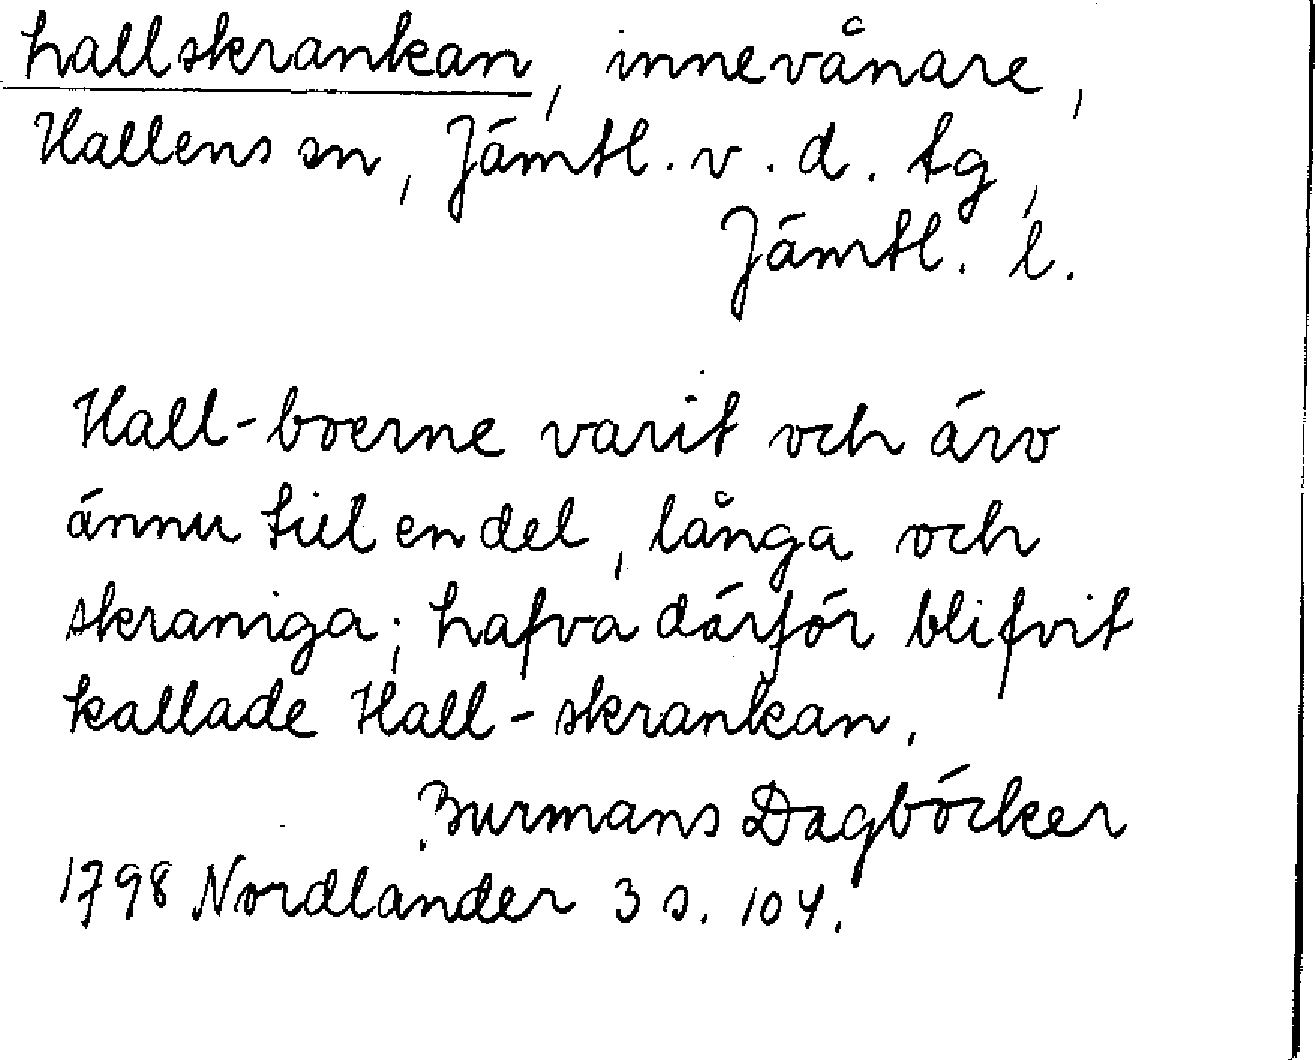 hallskrankan, innevånare,
Hallens sn, Jämtl. v. d. tg,
Jämtl. l.
Hall-boerne varit och äro
ännu till en del, långa och
skraniga; hafva därför blifvit
kallade Hall-skrankan.
Burmans Dagböcker
1798 Nordlander 3 s. 104.